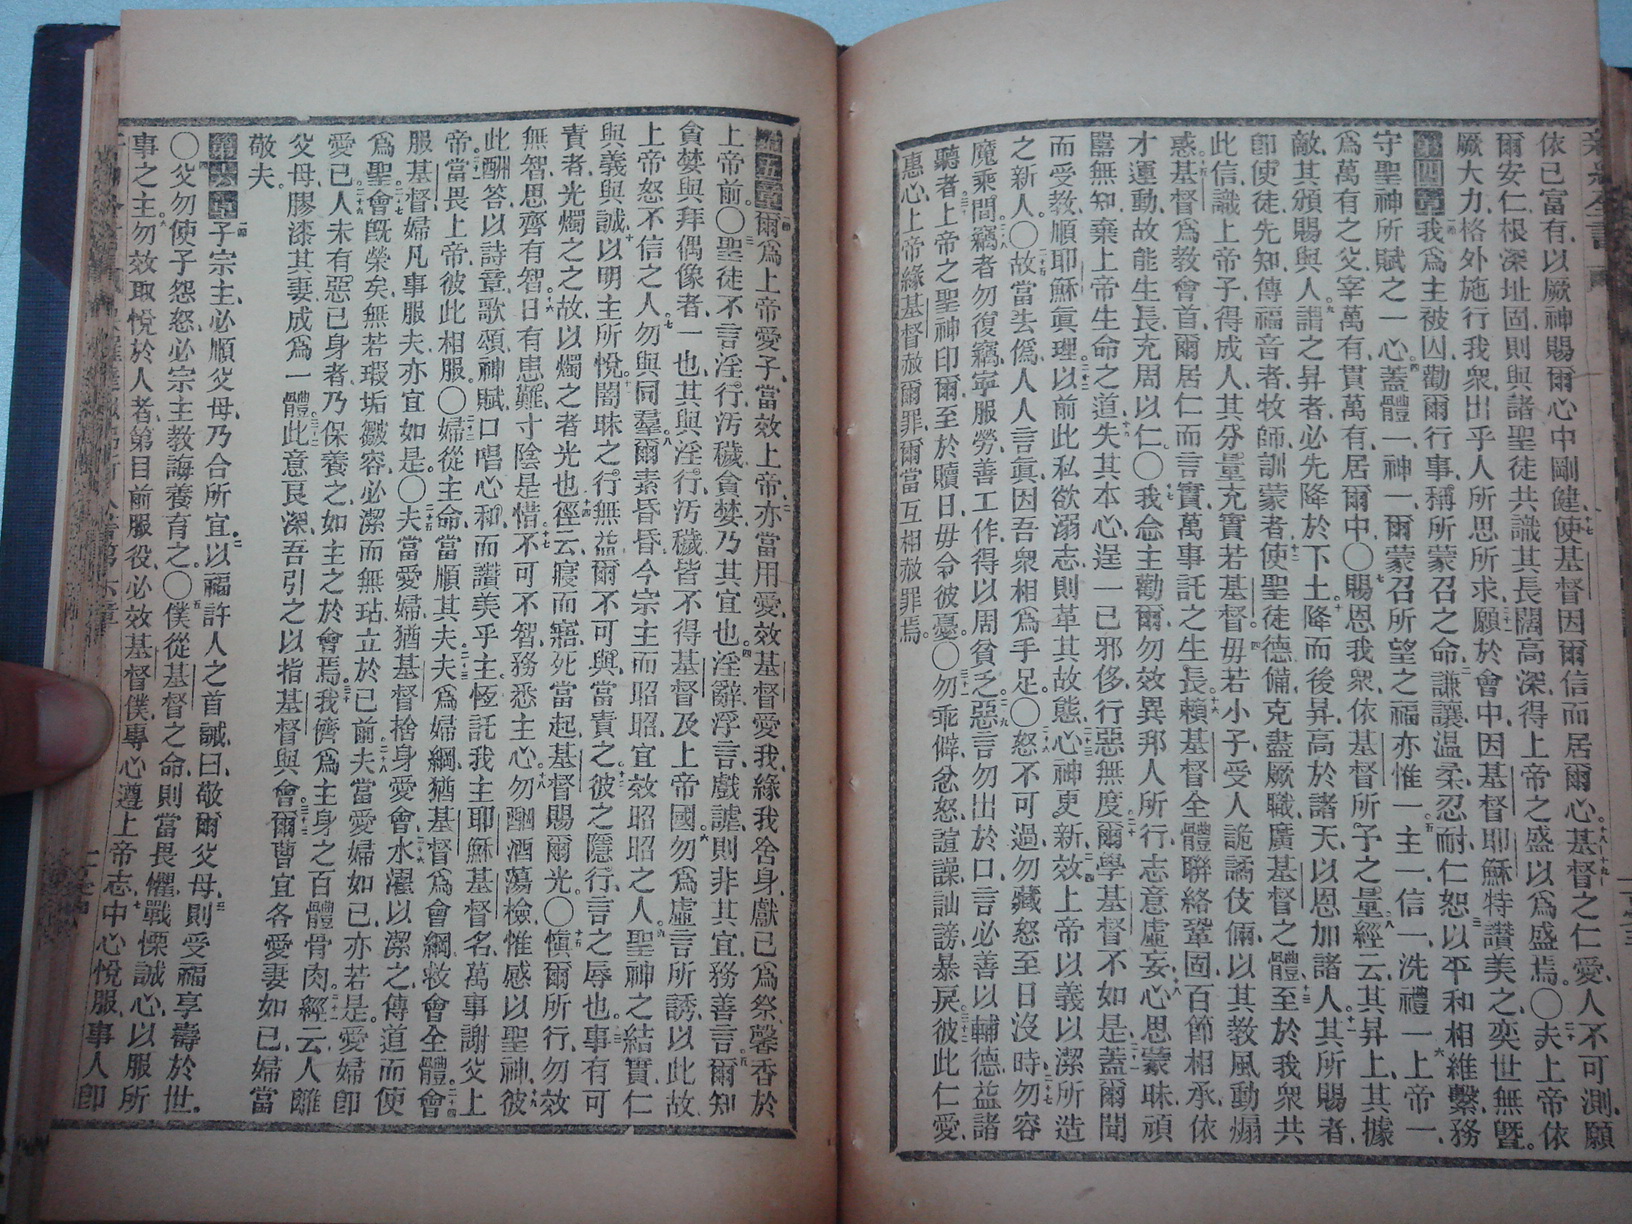 新約全書
依己富有以厥神賜爾心中剛健使基督因爾信而居爾心基督之仁愛人不可測願
爾安仁根深址固則與諸聖徒共識其長闊高深得上帝之盛以爲盛焉〇夫上帝依
厥大力格外施行我衆出乎人所思所求願於會中因基督耶穌特讚美之奕世無曁
第四章我爲主被囚勸爾行事稱所蒙召之命謙讓温柔忍耐仁恕以平和相維繫務
守聖神所賦之一心蓋體一神一爾蒙召所望之福亦惟一主一信一洗禮一上帝一
爲萬有之父宰萬有貫萬有居爾中〇賜恩我衆依基督所予之量經云其昇上其據
敵其頒賜與人謂之昇者必先降於下土降而後昇高於諸天以恩加諸人其所賜者
卽使徒先知傳福音者牧師訓蒙者使聖徒德備克盡厥職廣基督之體至於我衆共
此信識上帝子得成人其分量充實若基督毋若小子受人詭譎伎倆以其教風動煽
惑基督爲教會首爾居仁而言實萬事託之生長賴基督全體聯絡鞏固百節相承依
才運動故能生長充周以仁〇我念主勸爾勿效異邦人所行志意虛妄心思蒙昧頑
嚚無知棄上帝生命之道失其本心逞一己邪侈行惡無度爾學基督不如是蓋爾聞
而受教順耶穌眞理以前此私欲溺志則革其故態心神更新效上帝以義以潔所造
之新人〇故當去僞人人言眞因吾衆相爲手足〇怒不可過勿藏怒至日沒時勿容
魔乘間竊者勿復竊寧服勞善工作得以周貧乏惡言勿出於口言必善以輔德益諸
聽者上帝之聖神印爾至於贖日毋令彼憂〇勿乖僻忿怒諠譟訕謗暴戾彼此仁愛
惠心上帝緣基督赦爾罪爾當互相赦罪焉
第五章爾爲上帝愛子當效上帝亦當用愛效基督愛我緣我舍身獻己爲祭馨香於
上帝前〇聖徒不言淫行污穢貪婪乃其宜也淫辭浮言戲謔則非其宜務善言爾知
貪婪與拜偶像者一也其與淫行污穢皆不得基督及上帝國勿爲虛言所誘以此故
上帝怒不信之人勿與同羣爾素昏昏今宗主而昭昭宜效昭昭之人聖神之結實仁
與義與誠以明主所悅闇昧之行無益爾不可與當責之彼之隱行言之辱也事有可
責者光燭之之故以燭之者光也徑云寢而寤死當起基督賜爾光〇愼爾所行勿效
無智思齊有智日有患難寸陰是惜不可不智務悉主心勿酗酒蕩檢惟感以聖神彼
此酬答以詩章歌頌神賦口唱心和而讚美乎主恆託我主耶穌基督名萬事謝父上
帝當畏上帝彼此相服〇婦從主命當順其夫夫爲婦綱猶基督爲會綱救會全體會
服基督婦凡事服夫亦宜如是〇夫當愛婦猶基督捨身愛會水濯以潔之傳道而使
爲聖會旣榮矣無若瑕垢皺容必潔而無玷立於己前夫當愛婦如己亦若是愛婦卽
愛己人未有惡己身者乃保養之如主之於會焉我儕爲主身之百體骨肉經云人離
父母膠漆其妻成爲一體此意艮深吾引之以指基督與會爾曹宜各愛妻如己婦當
敬夫
第六章子宗主必順父母乃合所宜以福許人之首誡曰敬爾父母則受福享壽於世
〇父勿使子怨怒必宗主教誨養育之〇僕從基督之命則當畏懼戰慄誠心以服所
事之主勿效取悅於人者第目前服役必效基督僕專心遵上帝志中心悅服事人卽